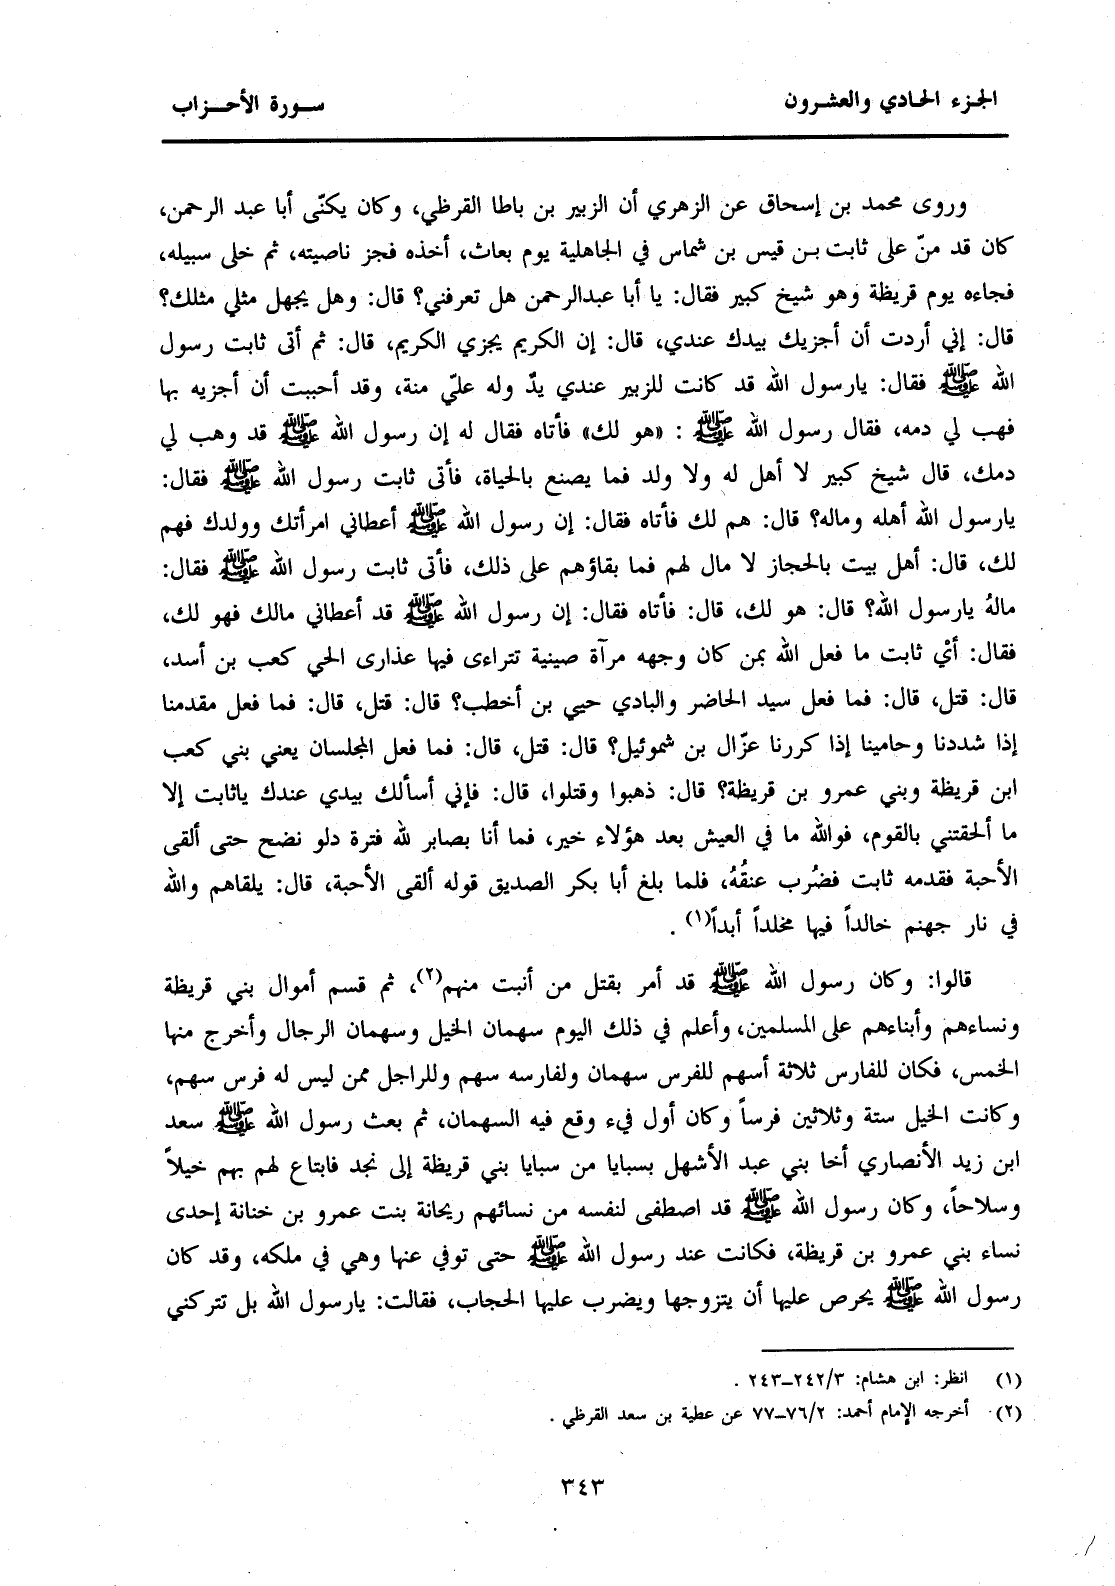 الجزء الحادي والعشرون
سورة الأحزاب
وروى محمد بن إسحاق عن الزهري أن الزبير بن باطا القرظي، وكان يكنّى أبا عبد الرحمن،
كان قد منّ على ثابت بن قيس بن شماس في الجاهلية يوم بعاث، أخذه فجز ناصيته، ثم خلى سبيله،
فجاءه يوم قريظة وهو شيخ كبير فقال: يا أبا عبدالرحمن هل تعرفني؟ قال: وهل يجهل مثلي مثلك؟
قال: إني أردت أن أجزيك بيدك عندي، قال: إن الكريم يجزي الكريم، قال: ثم أتى ثابت رسول
الله ﷺ فقال: يارسول الله قد كانت للزبير عندي يدٌ وله عليّ منة، وقد أحببت أن أجزيه بها
فهب لي دمه، فقال رسول الله ﷺ : «هو لك» فأتاه فقال له إن رسول الله ﷺ قد وهب لي
دمك، قال شيخ كبير لا أهل له ولا ولد فما يصنع بالحياة، فأتى ثابت رسول الله ﷺ فقال:
يارسول الله أهله وماله؟ قال: هم لك فأتاه فقال: إن رسول الله ﷺ أعطاني امرأتك وولدك فهم
لك، قال: أهل بيت بالحجاز لا مال لهم فما بقاؤهم على ذلك، فأتى ثابت رسول الله ﷺ فقال:
مالهُ يارسول الله؟ قال: هو لك، قال: فأتاه فقال: إن رسول الله ﷺ قد أعطاني مالك فهو لك،
فقال: أيْ ثابت ما فعل الله بمن كان وجهه مرآة صينية تتراءى فيها عذارى الحي كعب بن أسد،
قال: قتل، قال: فما فعل سيد الحاضر والبادي حيي بن أخطب؟ قال: قتل، قال: فما فعل مقدمنا
إذا شددنا وحامينا إذا كررنا عزّال بن شموئيل؟ قال: قتل، قال: فما فعل المجلسان يعني بني كعب
ابن قريظة وبني عمرو بن قريظة؟ قال: ذهبوا وقتلوا، قال: فإني أسألك بيدي عندك ياثابت إلا
ما ألحقتني بالقوم، فوالله ما في العيش بعد هؤلاء خير، فما أنا بصابر لله فترة دلو نضح حتى ألقى
الأحبة فقدمه ثابت فضُرب عنقُهُ، فلما بلغ أبا بكر الصديق قوله ألقى الأحبة، قال: يلقاهم والله
في نار جهنم خالداً فيها مخلداً أبداً(١) .
قالوا: وكان رسول الله ﷺ قد أمر بقتل من أنبت منهم(٢)، ثم قسم أموال بني قريظة
ونساءهم وأبناءهم على المسلمين، وأعلم في ذلك اليوم سهمان الخيل وسهمان الرجال وأخرج منها
الخمس، فكان للفارس ثلاثة أسهم للفرس سهمان ولفارسه سهم وللراجل ممن ليس له فرس سهم،
وكانت الخيل ستة وثلاثين فرساً وكان أول فيء وقع فيه السهمان، ثم بعث رسول الله ﷺ سعد
ابن زيد الأنصاري أخا بني عبد الأشهل بسبايا من سبايا بني قريظة إلى نجد فابتاع لهم بهم خيلاً
وسلاحاً، وكان رسول الله ﷺ قد اصطفى لنفسه من نسائهم ريحانة بنت عمرو بن خنانة إحدى
نساء بني عمرو بن قريظة، فكانت عند رسول الله ﷺ حتى توفي عنها وهي في ملكه، وقد كان
رسول الله ﷺ يحرص عليها أن يتزوجها ويضرب عليها الحجاب، فقالت: يارسول الله بل تتركني
(١) انظر: ابن هشام: ٢٤٢/٣-٢٤٣ .
(٢) أخرجه الإمام أحمد: ٧٦/٢-٧٧ عن عطية بن سعد القرظي .
٣٤٣